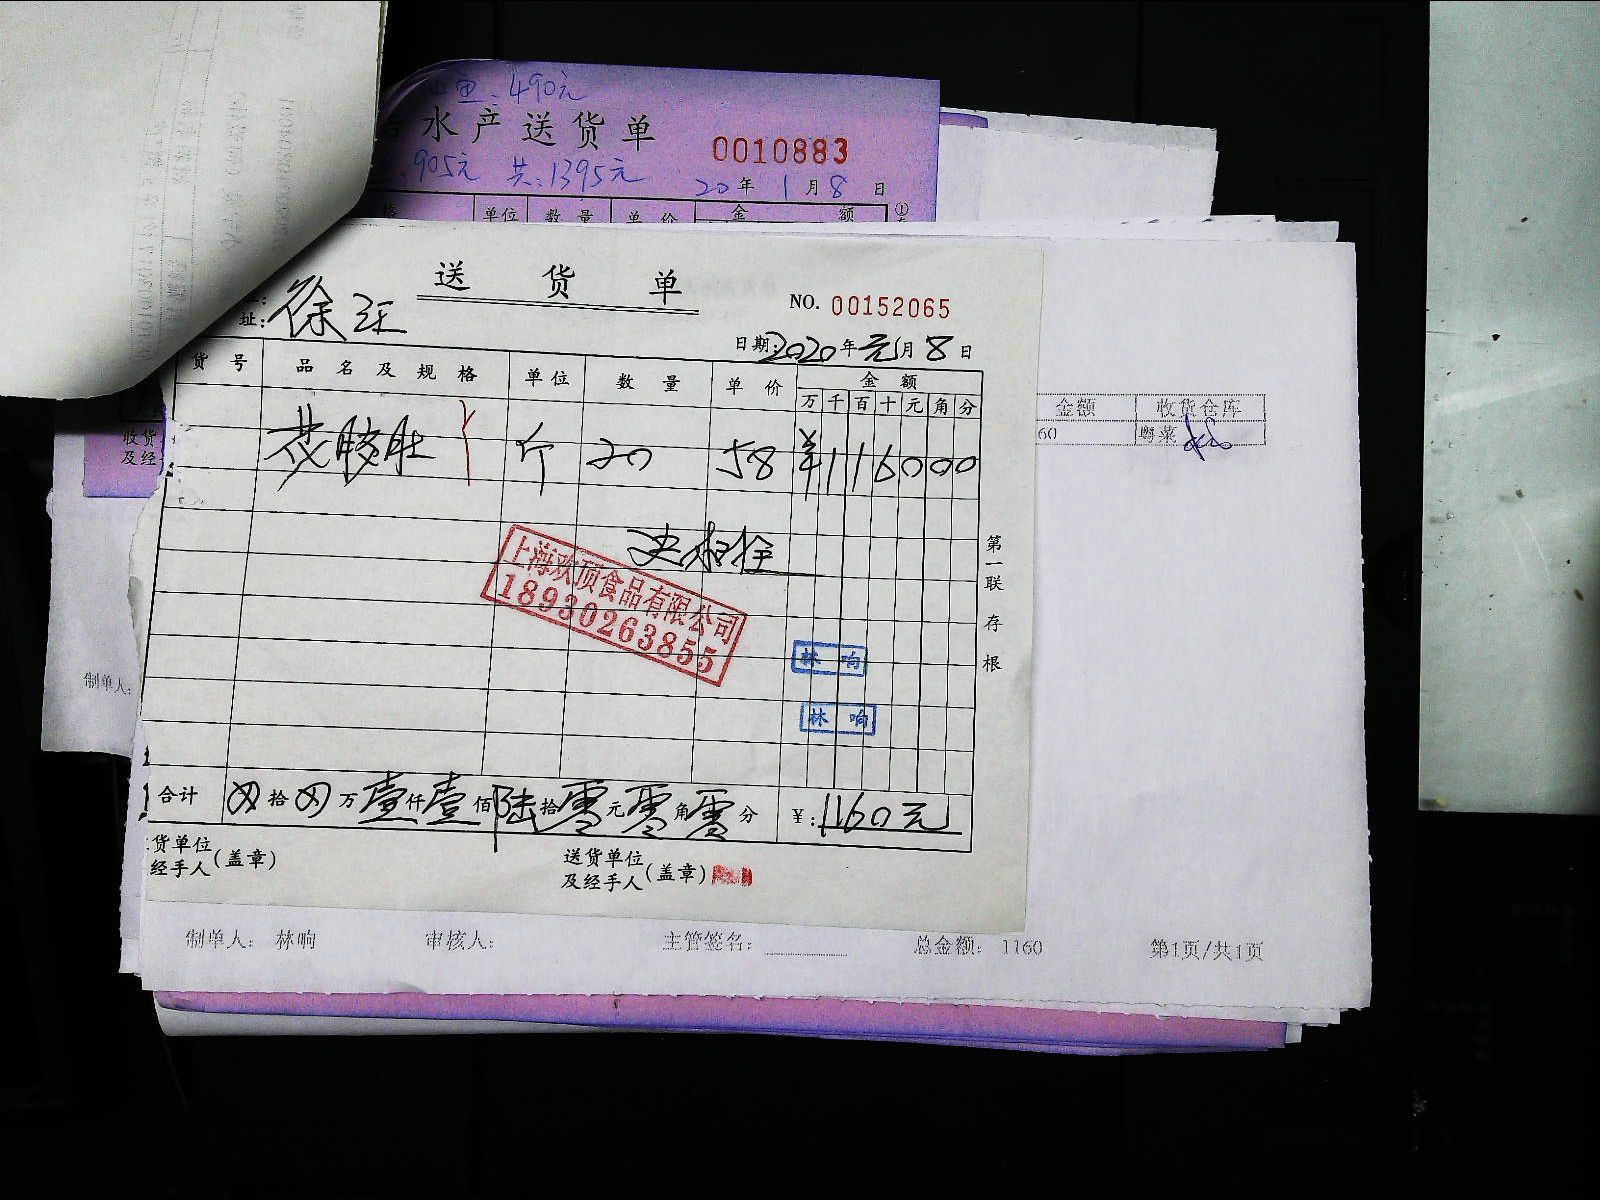 鱼:490元
水产送货单
0010883
905元 共:1395元
20年1月8日
单位 数量 单价 金额
送货单
NO. 00152065
址: 徐汇
日期:2020年元月8日
货号 品名及规格 单位 数量 单价 金额
万 千 百 十 元 角 分
花胶肚 斤 20 58 ¥116000
上海欢顶食品有限公司
18930263855
林响
林响
第一联存根
合计 拾 万壹仟壹佰陆拾零元零角零分 ¥:1160元
货单位
经手人(盖章)
送货单位
及经手人(盖章)
金额 收货仓库
60 粤菜
收货
及经
制单人:
制单人: 林响 审核人: 主管签名: 总金额: 1160 第1页/共1页